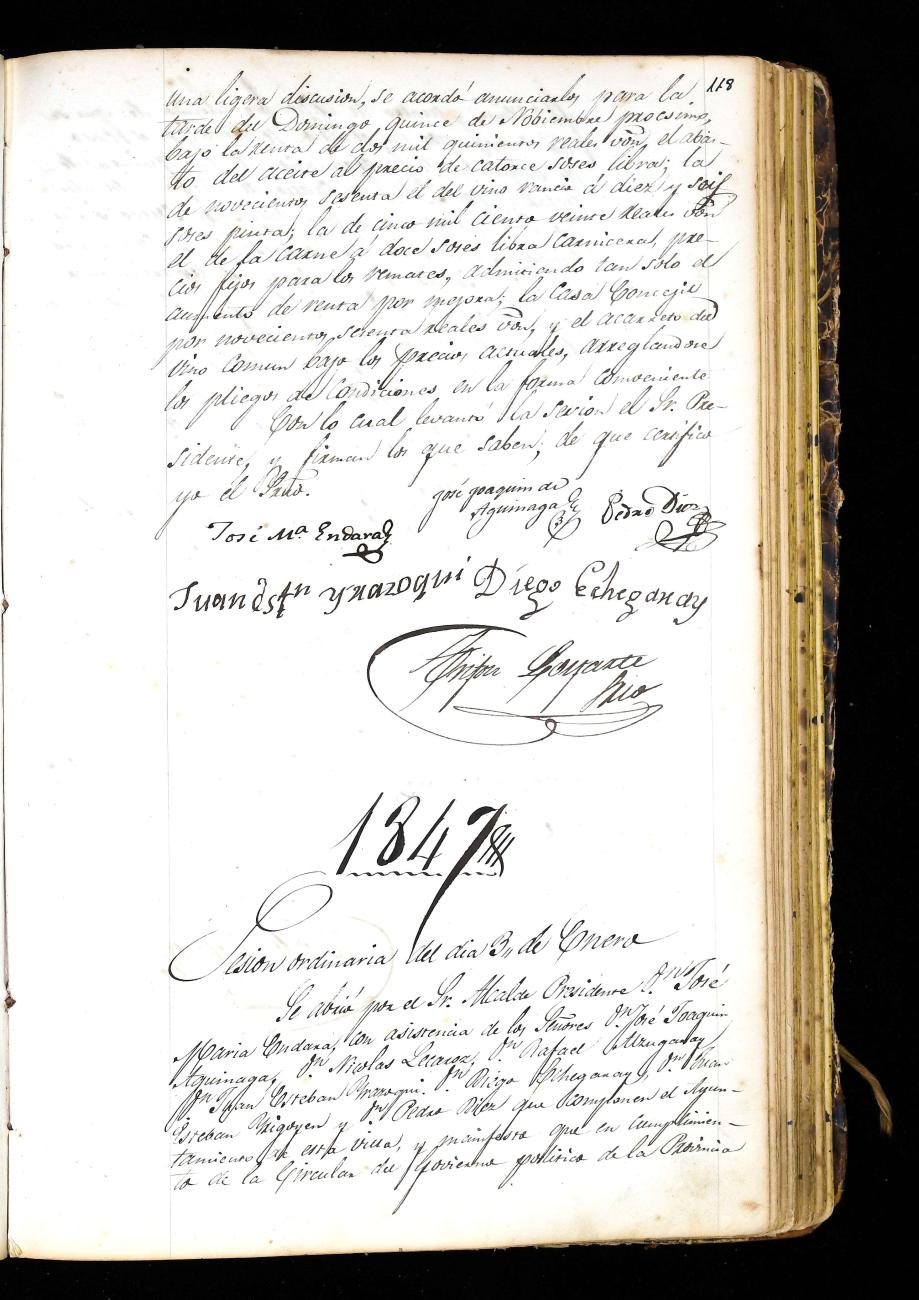 118
una ligera discusion, se acordó anunciarlos para la
tarde del Domingo quince de Nobiembre procsimo,
bajo la renta de dos mil quinientos reales von, el abas-
to del aceite al precio de catorce soses libra; la
de novecientos sesenta el del vino rancio á diez y seis
soses pinta; la de cinco mil ciento veinte reales von
el de la carne á doce soses libra carnicera, pre-
cios fijos para los remates, admitiendo tan solo el
aumento de renta por mejora; la Casa Concejil
por novecientos sesenta reales von, y el acarreto del
vino comun bajo los precios actuales, arreglandose
los pliegos de condiciones en la forma conveniente
Con lo cual levantó la sesion el Sr. Pre-
sidente, y firman los que saben; de que certifico
yo el Srio.
José Joaquin de
Aguinaga
Pedro Diez
José Ma Endara
Juan Estn Yrazoqui Diego Echegaray
Srio
1847
Sesion ordinaria del dia 3,, de Enero
Se abrió por el Sr. Alcalde Presidente Dn José
Maria Endara, con asistencia de los Señores Dn José Joaquin
Aguinaga, Dn Nicolas Lecaroz, Dn Rafael Alzugaray
Dn Juan Esteban Yrazoqui. Dn Diego Echegaray, Dn Juan
Esteban Yrigoyen y Dn Pedro Diez que componen el Ayun-
tamiento de esta villa, y manifestó que en cumplimien-
to de la Circular del Govierno politico de la Provincia